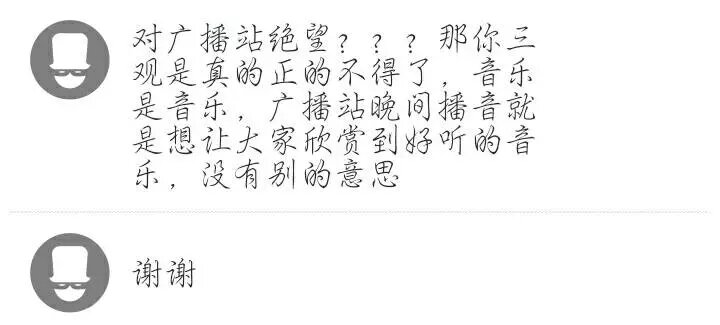 对广播站绝望？？？那你三
观是真的正的不得了，音乐
是音乐，广播站晚间播音就
是想让大家欣赏到好听的音
乐，没有别的意思
谢谢